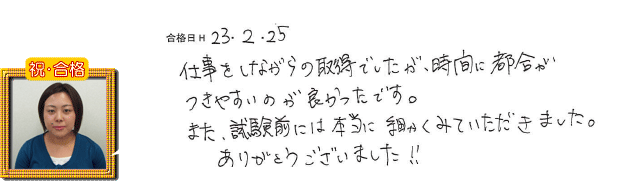 合格日 H 23.2.25
祝・合格
仕事をしながらの取得でしたが、時間に都合が
つきやすいのが良かったです。
また、試験前には本当に細かくみていただきました。
ありがとうございました!!